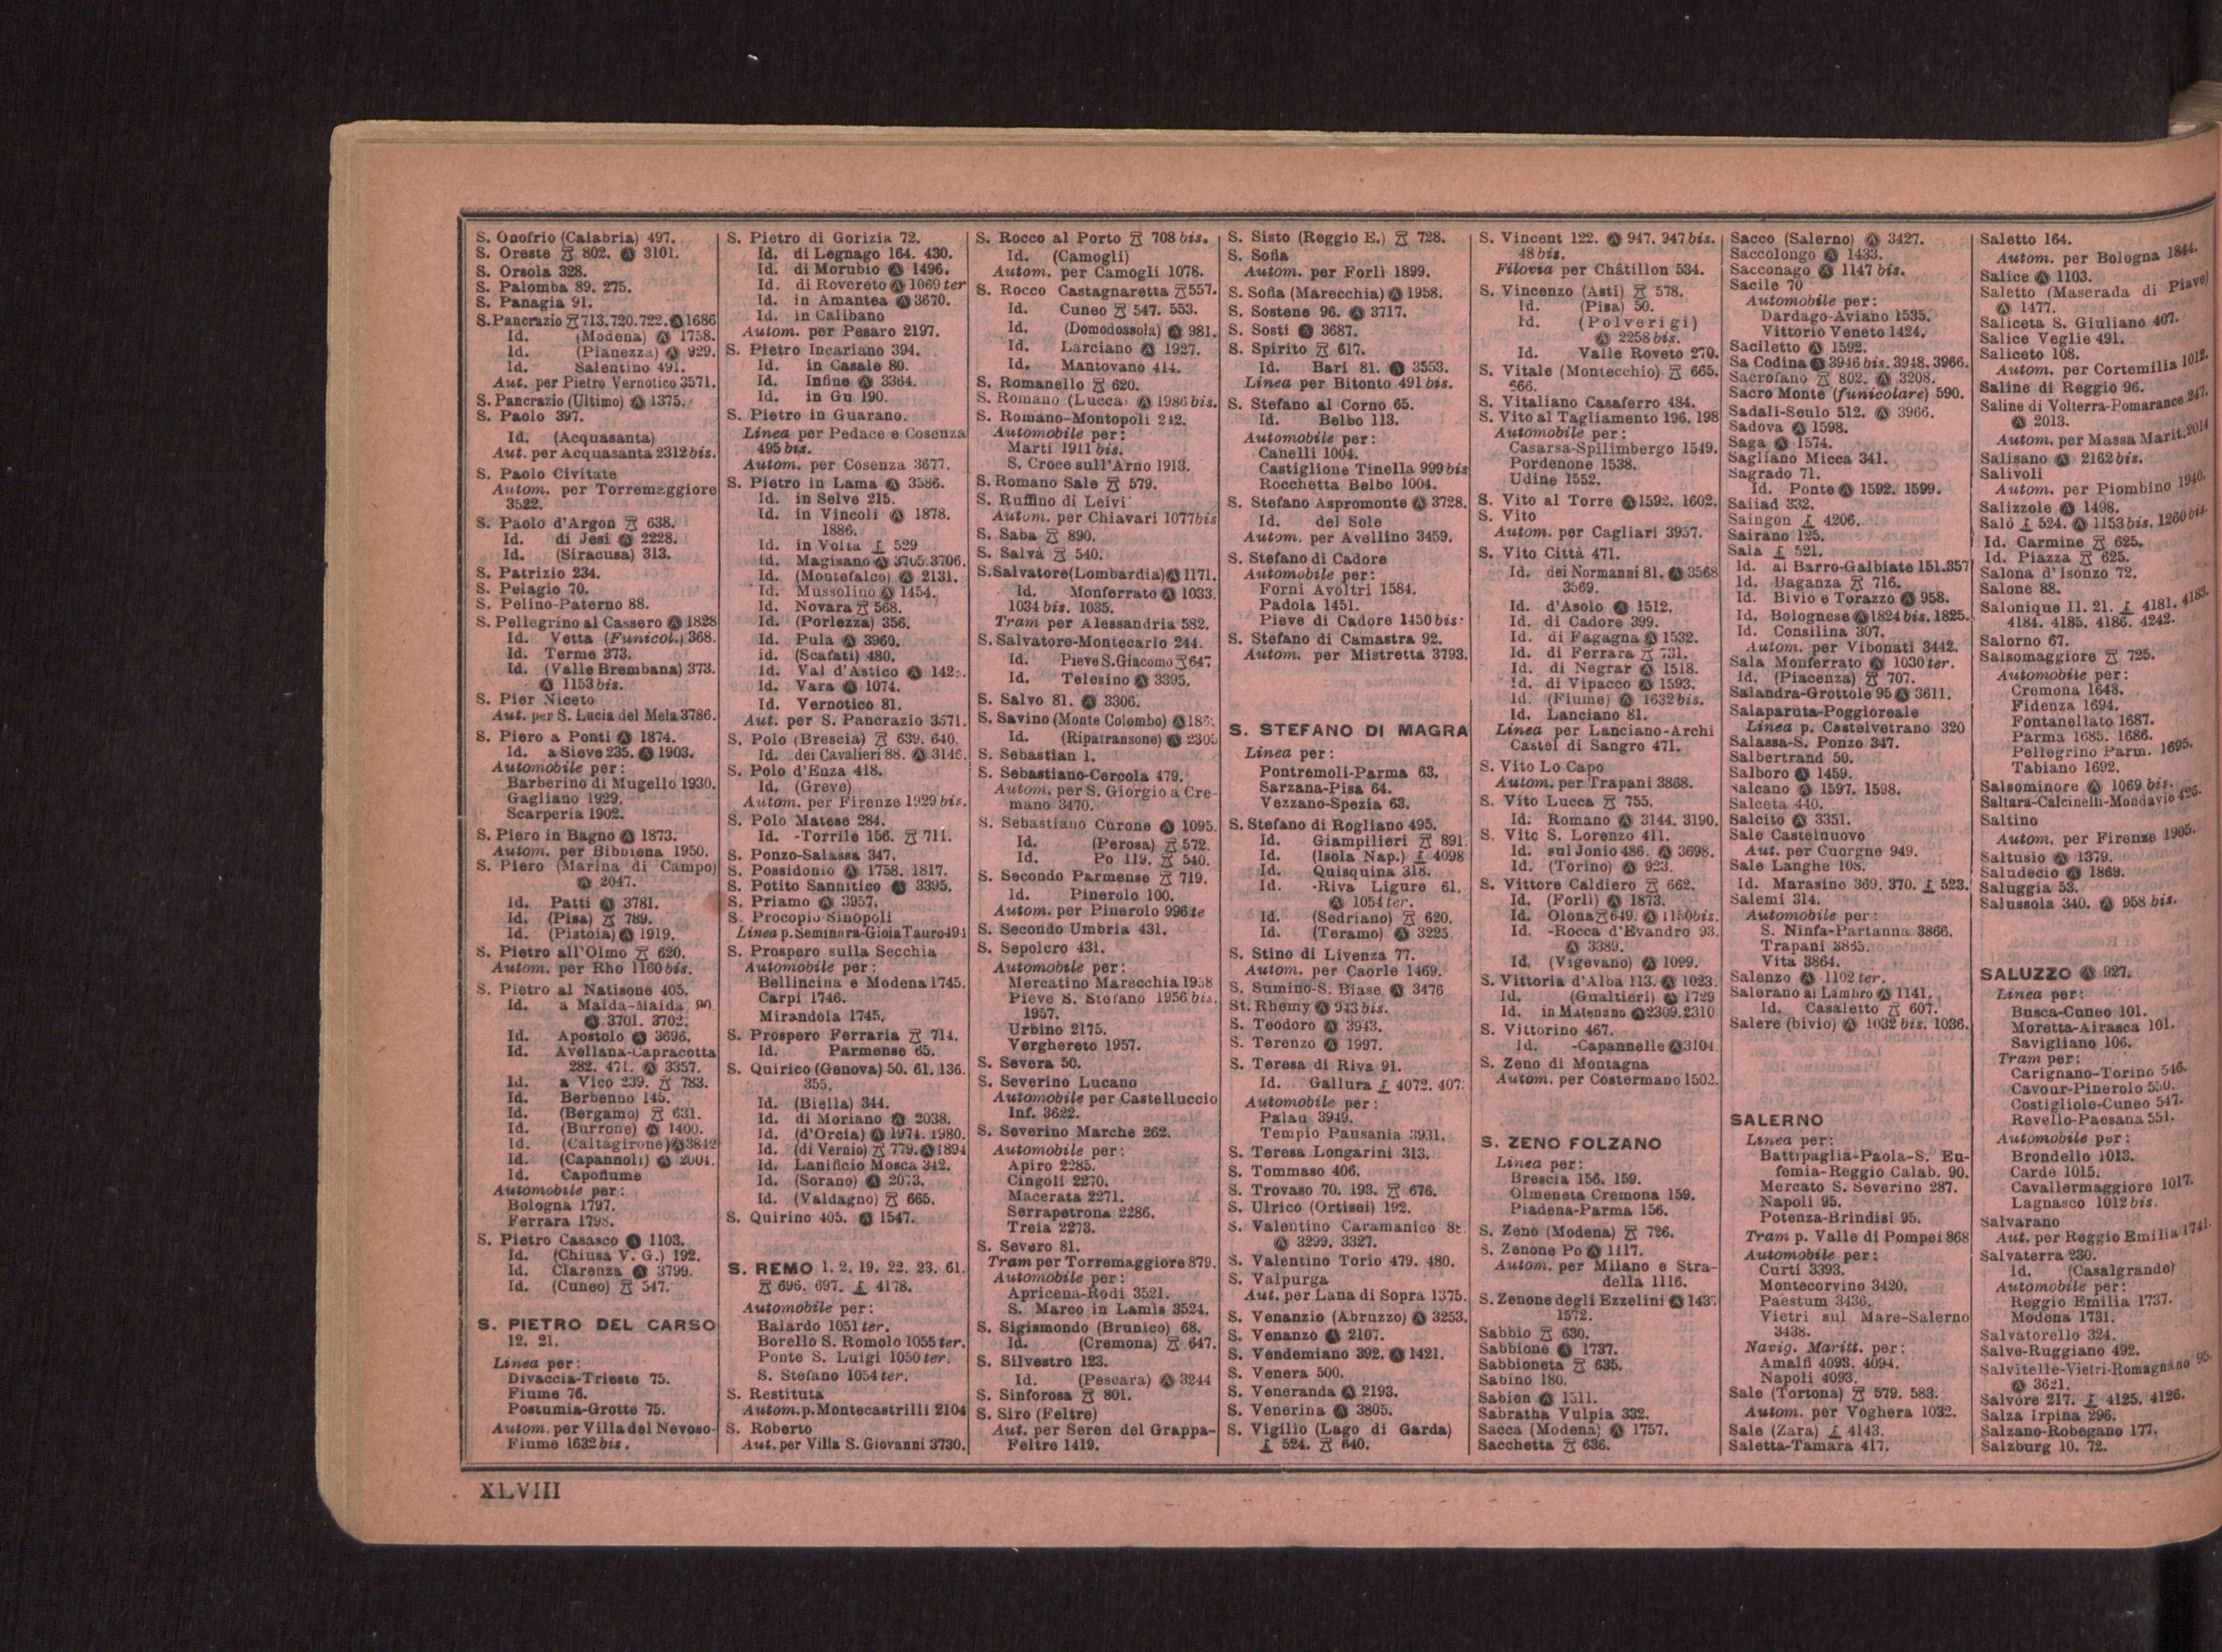 S. Onofrio (Calabria) 497.
S. Oreste 802. Ⓐ 3101.
S. Orsola 328.
S. Palomba 89. 275.
S. Panagia 91.
S. Pancrazio 713.720.722. Ⓐ 1686
Id. (Modena) Ⓐ 1758.
Id. (Pianezza) Ⓐ 929.
Id. Salentino 491.
Aut. per Pietro Vernotico 3571.
S. Pancrazio (Ultimo) Ⓐ 1375.
S. Paolo 397.
Id. (Acquasanta)
Aut. per Acquasanta 2312 bis.
S. Paolo Civitate
Autom. per Torremaggiore
3522.
S. Paolo d'Argon 638.
Id. di Jesi Ⓐ 2228.
Id. (Siracusa) 313.
S. Patrizio 234.
S. Pelagio 70.
S. Pelino-Paterno 88.
S. Pellegrino al Cassero Ⓐ 1828
Id. Vetta (Funicol.) 368.
Id. Terme 373.
Id. (Valle Brembana) 373.
Ⓐ 1153 bis.
S. Pier Niceto
Aut. per S. Lucia del Mela 3786.
S. Piero a Ponti Ⓐ 1874.
Id. a Sieve 235. Ⓐ 1903.
Automobile per:
Barberino di Mugello 1930.
Gagliano 1929.
Scarperia 1902.
S. Piero in Bagno Ⓐ 1873.
Autom. per Bibbiena 1950.
S. Piero (Marina di Campo)
Ⓐ 2047.
Id. Patti Ⓐ 3781.
Id. (Pisa) 789.
Id. (Pistoia) Ⓐ 1919.
S. Pietro all'Olmo 620.
Autom. per Rho 1160 bis.
S. Pietro al Natisone 405.
Id. a Maida-Maida 90
Ⓐ 3701. 3702.
Id. Apostolo Ⓐ 3696.
Id. Avellana-Capracotta
282. 471. Ⓐ 3357.
Id. a Vico 239. 783.
Id. Berbenno 145.
Id. (Bergamo) 631.
Id. (Burrone) Ⓐ 1400.
Id. (Caltagirone) Ⓐ 3842
Id. (Capannoli) Ⓐ 2004.
Id. Capofiume
Automobile per:
Bologna 1797.
Ferrara 1798.
S. Pietro Casasco Ⓐ 1103.
Id. (Chiusa V. G.) 192.
Id. Clarenza Ⓐ 3799.
Id. (Cuneo) 547.
S. PIETRO DEL CARSO
12. 21.
Linea per:
Divaccia-Trieste 75.
Fiume 76.
Postumia-Grotte 75.
Autom. per Villa del Nevoso-
Fiume 1632 bis.
S. Pietro di Gorizia 72.
Id. di Legnago 164. 430.
Id. di Morubio Ⓐ 1496.
Id. di Rovereto Ⓐ 1069 ter
Id. in Amantea Ⓐ 3670.
Id. in Calibano
Autom. per Pesaro 2197.
S. Pietro Incariano 394.
Id. in Casale 80.
Id. Infine Ⓐ 3364.
Id. in Gu 190.
S. Pietro in Guarano.
Linea per Pedace e Cosenza
495 bis.
Autom. per Cosenza 3677.
S. Pietro in Lama Ⓐ 3586.
Id. in Selve 215.
Id. in Vincoli Ⓐ 1878.
1886.
Id. in Volta 529
Id. Magisano Ⓐ 3705.3706.
Id. (Montefalco) Ⓐ 2131.
Id. Mussolino Ⓐ 1454.
Id. Novara 568.
Id. (Porlezza) 356.
Id. Pula Ⓐ 3960.
id. (Scafati) 480.
Id. Val d'Astico Ⓐ
Id. Vara Ⓐ 1074.
Id. Vernotico 81.
Aut. per S. Pancrazio 3571.
S. Polo (Brescia) 639. 640.
Id. dei Cavalieri 88. Ⓐ 3146.
S. Polo d'Enza 418.
Id. (Greve)
Autom. per Firenze 1929 bis.
S. Polo Matese 284.
Id. -Torrile 156. 711.
S. Ponzo-Salassa 347.
S. Possidonio Ⓐ 1758. 1817.
S. Potito Sannitico Ⓐ 3395.
S. Priamo Ⓐ 3957.
S. Procopio Sinopoli
Linea p. Seminara-Gioia Tauro 494
S. Prospero sulla Secchia
Automobile per:
Bellincina e Modena 1745.
Carpi 1746.
Mirandola 1745.
S. Prospero Ferraria 714.
Id. Parmense 65.
S. Quirico (Genova) 50. 61. 136.
355.
Id. (Biella) 344.
Id. di Moriano Ⓐ 2038.
Id. (d'Orcia) Ⓐ 1974. 1980.
Id. (di Vernio) 779. Ⓐ 1894
Id. Lanificio Mosca 342.
Id. (Sorano) Ⓐ 2073.
Id. (Valdagno) 665.
S. Quirino 405. Ⓐ 1547.
S. REMO 1. 2. 19. 22. 23. 61.
696. 697. 4178.
Automobile per:
Baiardo 1051 ter.
Borello S. Romolo 1055 ter.
Ponte S. Luigi 1050 ter.
S. Stefano 1054 ter.
S. Restituta
Autom. p. Montecastrilli 2104
S. Roberto
Aut. per Villa S. Giovanni 3730.
S. Rocco al Porto 708 bis.
Id. (Camogli)
Autom. per Camogli 1078.
S. Rocco Castagnaretta 557.
Id. Cuneo 547. 553.
Id. (Domodossola) Ⓐ 981.
Id. Larciano Ⓐ 1927.
Id. Mantovano 414.
S. Romanello 620.
S. Romano (Lucca) Ⓐ 1986 bis.
S. Romano-Montopoli 242.
Automobile per:
Marti 1911 bis.
S. Croce sull'Arno 1913.
S. Romano Sale 579.
S. Ruffino di Leivi
Autom. per Chiavari 1077 bis
S. Saba 890.
S. Salvà 540.
S. Salvatore (Lombardia) Ⓐ 1171.
Id. Monferrato Ⓐ 1033.
1034 bis. 1035.
Tram per Alessandria 582.
S. Salvatore-Montecarlo 244.
Id. Pieve S. Giacomo 647
Id. Telesino Ⓐ 3395.
S. Salvo 81. Ⓐ 3306.
S. Savino (Monte Colombo) Ⓐ
Id. (Ripatransone) Ⓐ 2305
S. Sebastian 1.
S. Sebastiano-Cercola 479.
Autom. per S. Giorgio a Cre-
mano 3470.
S. Sebastiano Curone Ⓐ 1095.
Id. (Perosa) 572.
Id. Po 119. 540.
S. Secondo Parmense 719.
Id. Pinerolo 100.
Autom. per Pinerolo 996 te
S. Secondo Umbria 431.
S. Sepolcro 431.
Automobile per:
Mercatino Marecchia 1958
Pieve S. Stefano 1956 bis.
1957.
Urbino 2175.
Verghereto 1957.
S. Severa 50.
S. Severino Lucano
Automobile per Castelluccio
Inf. 3622.
S. Severino Marche 262.
Automobile per:
Apiro 2285.
Cingoli 2270.
Macerata 2271.
Serrapetrona 2286.
Treia 2273.
S. Severo 81.
Tram per Torremaggiore 879.
Automobile per:
Apricena-Rodi 3521.
S. Marco in Lamis 3524.
S. Sigismondo (Brunico) 68.
Id. (Cremona) 647.
S. Silvestro 123.
Id. (Pescara) Ⓐ 3244
S. Sinforosa 801.
S. Siro (Feltre)
Aut. per Seren del Grappa-
Feltre 1419.
S. Sisto (Reggio E.) 728.
S. Sofia
Autom. per Forlì 1899.
S. Sofia (Marecchia) Ⓐ 1958.
S. Sostene 96. Ⓐ 3717.
S. Sosti Ⓐ 3687.
S. Spirito 617.
Id. Bari 81. Ⓐ 3553.
Linea per Bitonto 491 bis.
S. Stefano al Corno 65.
Id. Belbo 113.
Automobile per:
Canelli 1004.
Castiglione Tinella 999 bis
Rocchetta Belbo 1004.
S. Stefano Aspromonte Ⓐ 3728.
Id. del Sole
Autom. per Avellino 3459.
S. Stefano di Cadore
Automobile per:
Forni Avoltri 1584.
Padola 1451.
Pieve di Cadore 1450 bis.
S. Stefano di Camastra 92.
Autom. per Mistretta 3793.
S. STEFANO DI MAGRA
Linea per:
Pontremoli-Parma 63.
Sarzana-Pisa 64.
Vezzano-Spezia 63.
S. Stefano di Rogliano 495.
Id. Giampilieri 891.
Id. (Isola Nap.) 4098
Id. Quisquina 318.
Id. -Riva Ligure 61.
Ⓐ 1054 ter.
Id. (Sedriano) 620.
Id. (Teramo) Ⓐ 3225.
S. Stino di Livenza 77.
Autom. per Caorle 1469.
S. Sumino-S. Biase Ⓐ 3476
St. Rhemy Ⓐ 943 bis.
S. Teodoro Ⓐ 3943.
S. Terenzo Ⓐ 1997.
S. Teresa di Riva 91.
Id. Gallura 4072.
Automobile per:
Palau 3949.
Tempio Pausania 3931.
S. Teresa Longarini 313.
S. Tommaso 406.
S. Trovaso 70. 193. 676.
S. Ulrico (Ortisei) 192.
S. Valentino Caramanico
Ⓐ 3299. 3327.
S. Valentino Torio 479. 480.
S. Valpurga
Aut. per Lana di Sopra 1375.
S. Venanzio (Abruzzo) Ⓐ 3253.
S. Venanzo Ⓐ 2107.
S. Vendemiano 392. Ⓐ 1421.
S. Venera 500.
S. Veneranda Ⓐ 2193.
S. Venerina Ⓐ 3805.
S. Vigilio (Lago di Garda)
524. 640.
S. Vincent 122. Ⓐ 947. 947 bis.
48 bis.
Filovia per Châtillon 534.
S. Vincenzo (Asti) 578.
Id. (Pisa) 50.
Id. (Polverigi)
Ⓐ 2258 bis.
Id. Valle Roveto 270.
S. Vitale (Montecchio) 665.
666.
S. Vitaliano Casaferro 484.
S. Vito al Tagliamento 196. 198
Automobile per:
Casarsa-Spilimbergo 1549.
Pordenone 1538.
Udine 1552.
S. Vito al Torre Ⓐ 1592. 1602.
S. Vito
Autom. per Cagliari 3957.
S. Vito Città 471.
Id. dei Normanni 81. Ⓐ 3568
3569.
Id. d'Asolo Ⓐ 1512.
Id. di Cadore 399.
Id. di Fagagna Ⓐ 1532.
Id. di Ferrara 731.
Id. di Negrar Ⓐ 1518.
Id. di Vipacco Ⓐ 1593.
Id. (Fiume) Ⓐ 1632 bis.
Id. Lanciano 81.
Linea per Lanciano-Archi
Castel di Sangro 471.
S. Vito Lo Capo
Autom. per Trapani 3868.
S. Vito Lucca 755.
Id. Romano Ⓐ 3144. 3190.
S. Vito S. Lorenzo 411.
Id. sul Jonio 486. Ⓐ 3698.
Id. (Torino) Ⓐ 923.
S. Vittore Caldiero 662.
Id. (Forlì) Ⓐ 1873.
Id. Olona 649. Ⓐ 1150 bis.
Id. -Rocca d'Evandro 93.
Ⓐ 3389.
Id. (Vigevano) Ⓐ 1099.
S. Vittoria d'Alba 113. Ⓐ 1023.
Id. (Gualtieri) Ⓐ 1729
Id. in Matenano Ⓐ 2309.2310
S. Vittorino 467.
Id. -Capannelle Ⓐ 3104
S. Zeno di Montagna
Autom. per Costermano 1502.
S. ZENO FOLZANO
Linea per:
Brescia 156. 159.
Olmeneta Cremona 159.
Piadena-Parma 156.
S. Zeno (Modena) 726.
S. Zenone Po Ⓐ 1117.
Autom. per Milano e Stra-
della 1116.
S. Zenone degli Ezzelini Ⓐ
1572.
Sabbio 630.
Sabbione Ⓐ 1737.
Sabbioneta 635.
Sabino 180.
Sabion Ⓐ 1511.
Sabratha Vulpia 332.
Sacca (Modena) Ⓐ 1757.
Sacchetta 636.
Sacco (Salerno) Ⓐ 3427.
Saccolongo Ⓐ 1433.
Sacconago Ⓐ 1147 bis.
Sacile 70
Automobile per:
Dardago-Aviano 1535.
Vittorio Veneto 1424.
Saciletto Ⓐ 1592.
Sa Codina Ⓐ 3946 bis. 3948. 3966.
Sacrofano 802. Ⓐ 3208.
Sacro Monte (funicolare) 590.
Sadali-Seulo 512. Ⓐ 3966.
Sadova Ⓐ 1598.
Saga Ⓐ 1574.
Sagliano Micca 341.
Sagrado 71.
Id. Ponte Ⓐ 1592. 1599.
Saiiad 332.
Saingon 4206.
Sairano 125.
Sala 521.
Id. al Barro-Galbiate 151.357
Id. Baganza 716.
Id. Bivio e Torazzo Ⓐ 958.
Id. Bolognese Ⓐ 1824 bis. 1825.
Id. Consilina 307.
Autom. per Vibonati 3442.
Sala Monferrato Ⓐ 1030 ter.
Id. (Piacenza) 707.
Salandra-Grottole 95 Ⓐ 3611.
Salaparuta-Poggioreale
Linea p. Castelvetrano 320
Salassa-S. Ponzo 347.
Salbertrand 50.
Salboro Ⓐ 1459.
Salcano Ⓐ 1597. 1598.
Salceta 440.
Salcito Ⓐ 3351.
Sale Castelnuovo
Aut. per Cuorgne 949.
Sale Langhe 108.
Id. Marasino 369. 370. 523.
Salemi 314.
Automobile per:
S. Ninfa-Partanna 3866.
Trapani 3865.
Vita 3864.
Salenzo Ⓐ 1102 ter.
Salerano al Lambro Ⓐ 1141.
Id. Casaletto 607.
Salere (bivio) Ⓐ 1032 bis. 1036.
SALERNO
Linea per:
Battipaglia-Paola-S. Eu-
femia-Reggio Calab. 90.
Mercato S. Severino 287.
Napoli 95.
Potenza-Brindisi 95.
Tram p. Valle di Pompei 868
Automobile per:
Curti 3393.
Montecorvino 3420.
Paestum 3436.
Vietri sul Mare-Salerno
3438.
Navig. Maritt. per:
Amalfi 4093. 4094.
Napoli 4093.
Sale (Tortona) 579. 583.
Autom. per Voghera 1032.
Sale (Zara) 4143.
Saletta-Tamara 417.
Saletto 164.
Autom. per Bologna 1844.
Salice Ⓐ 1103.
Saletto (Maserada di Piave)
Ⓐ 1477.
Saliceta S. Giuliano 407.
Salice Veglie 491.
Saliceto 108.
Autom. per Cortemilia 1012.
Saline di Reggio 96.
Saline di Volterra-Pomarance 247.
Ⓐ 2013.
Autom. per Massa Marit. 2014
Salisano Ⓐ 2162 bis.
Salivoli
Autom. per Piombino 1940.
Salizzole Ⓐ 1498.
Salò 524. Ⓐ 1153 bis. 1260 bis.
Id. Carmine 625.
Id. Piazza 625.
Salona d'Isonzo 72.
Salone 88.
Salonique 11. 21. 4181. 4183.
4184. 4185. 4186. 4242.
Salorno 67.
Salsomaggiore 725.
Automobile per:
Cremona 1648.
Fidenza 1694.
Fontanellato 1687.
Parma 1685. 1686.
Pellegrino Parm. 1695.
Tabiano 1692.
Salsominore Ⓐ 1069 bis.
Saltara-Calcinelli-Mondavio 426.
Saltino
Autom. per Firenze 1905.
Saltusio Ⓐ 1379.
Saludecio Ⓐ 1869.
Saluggia 53.
Salussola 340. Ⓐ 958 bis.
SALUZZO Ⓐ 927.
Linea per:
Busca-Cuneo 101.
Moretta-Airasca 101.
Savigliano 106.
Tram per:
Carignano-Torino 546.
Cavour-Pinerolo 550.
Costigliole-Cuneo 547.
Revello-Paesana 551.
Automobile per:
Brondello 1013.
Cardè 1015.
Cavallermaggiore 1017.
Lagnasco 1012 bis.
Salvarano
Aut. per Reggio Emilia 1741.
Salvaterra 230.
Id. (Casalgrande)
Automobile per:
Reggio Emilia 1737.
Modena 1731.
Salvatorello 324.
Salve-Ruggiano 492.
Salvitelle-Vietri-Romagnano 95.
Ⓐ 3621.
Salvore 217. 4125. 4126.
Salza Irpina 296.
Salzano-Robegano 177.
Salzburg 10. 72.
XLVIII